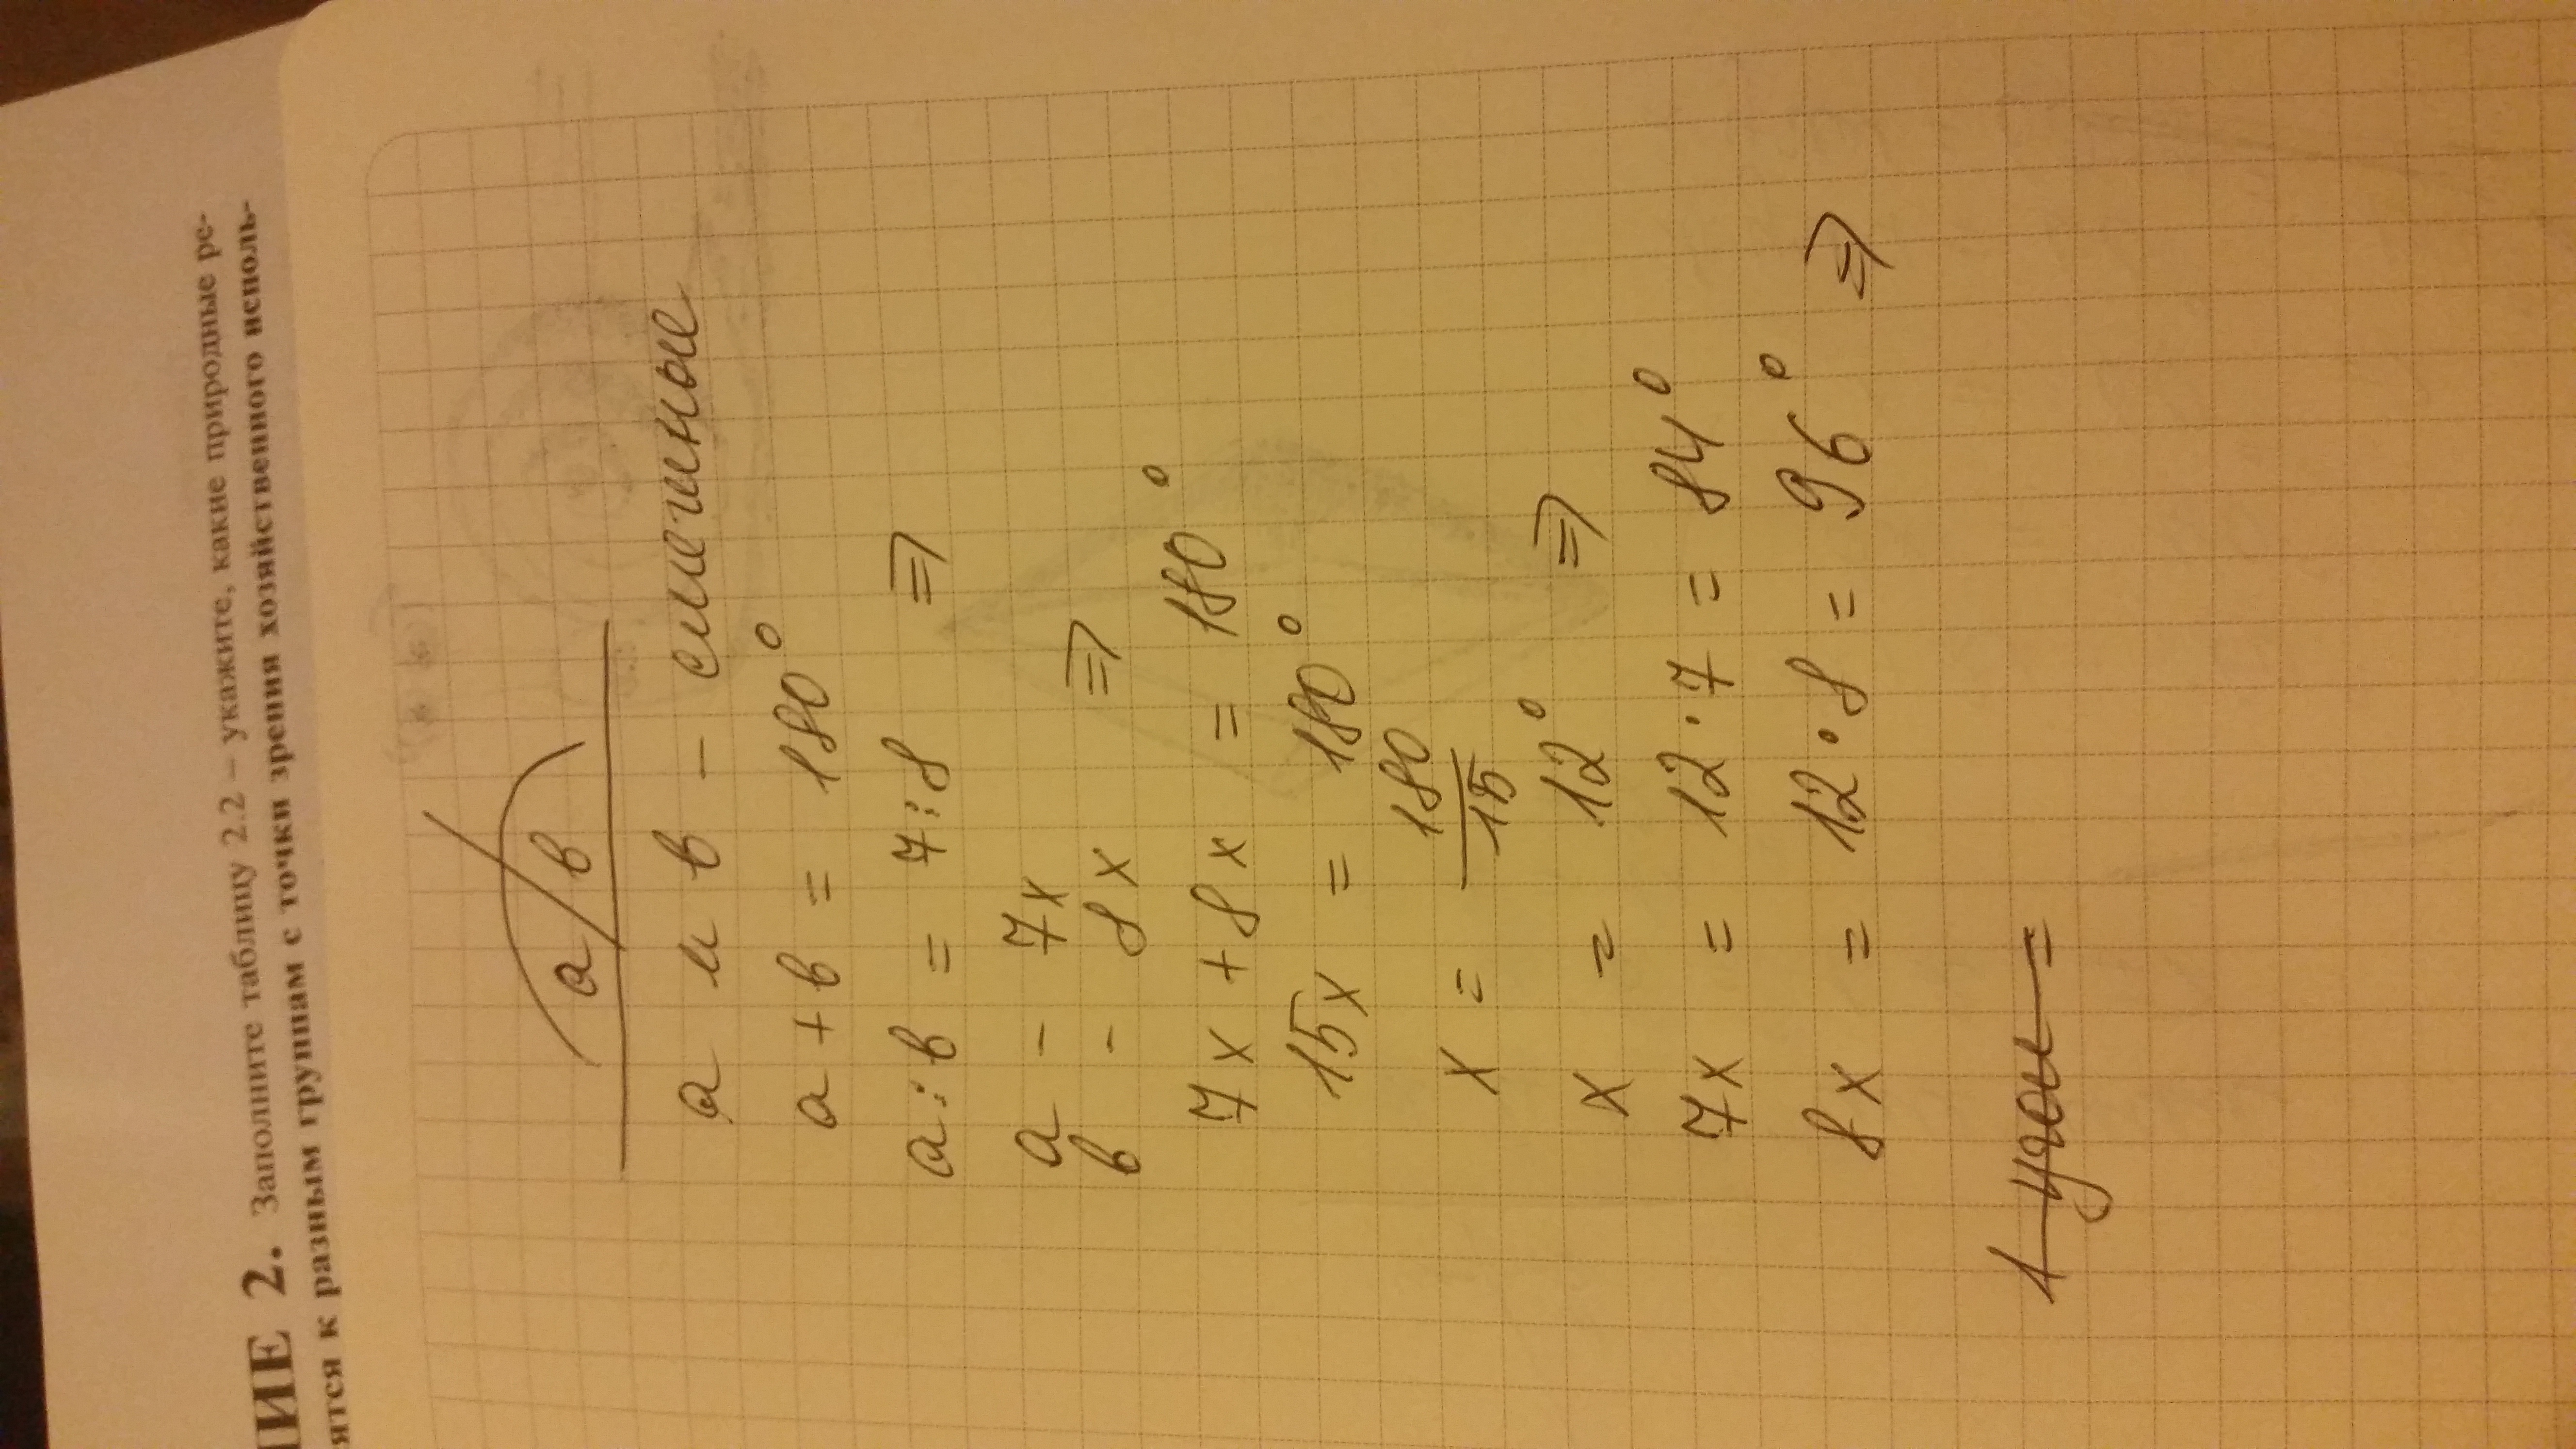 ИЕ 2. Заполните таблицу 2.2 – укажите, какие природные ре-
ятся к разным группам с точки зрения хозяйственного исполь-
а в
а и в - смежные
а + в = 180°
а : в = 7 : 8 ⇒
а - 7x
в - 8x ⇒
7x + 8x = 180°
15x = 180°
x = 180/15
x = 12° ⇒
7x = 12 · 7 = 84°
8x = 12 · 8 = 96° ⇒
1 угол =